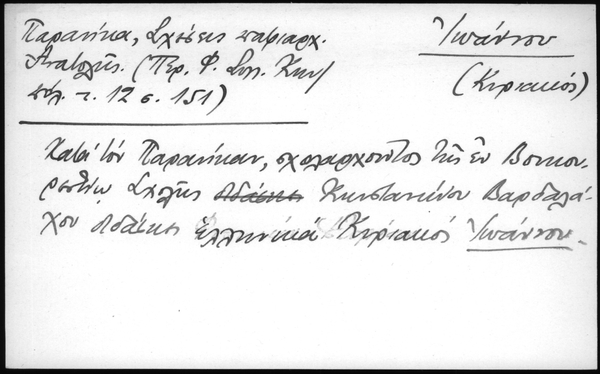 Παρανίκα, Σχέσεις πατριαρχ.
Ἀνατολῆς. (Περ. Φ. Συλ. Κων/
πολ. τ. 12 σ. 151)
Ἰωάννου
(Κυριακός)
Κατά τόν Παρανίκαν, σχολαρχοῦντος τῆς ἐν Βουκου-
ρεστίῳ Σχολῆς Κωνσταντίνου Βαρδαλά-
χου ἐδίδασκε Ἑλληνικά Κυριακός Ἰωάννου.